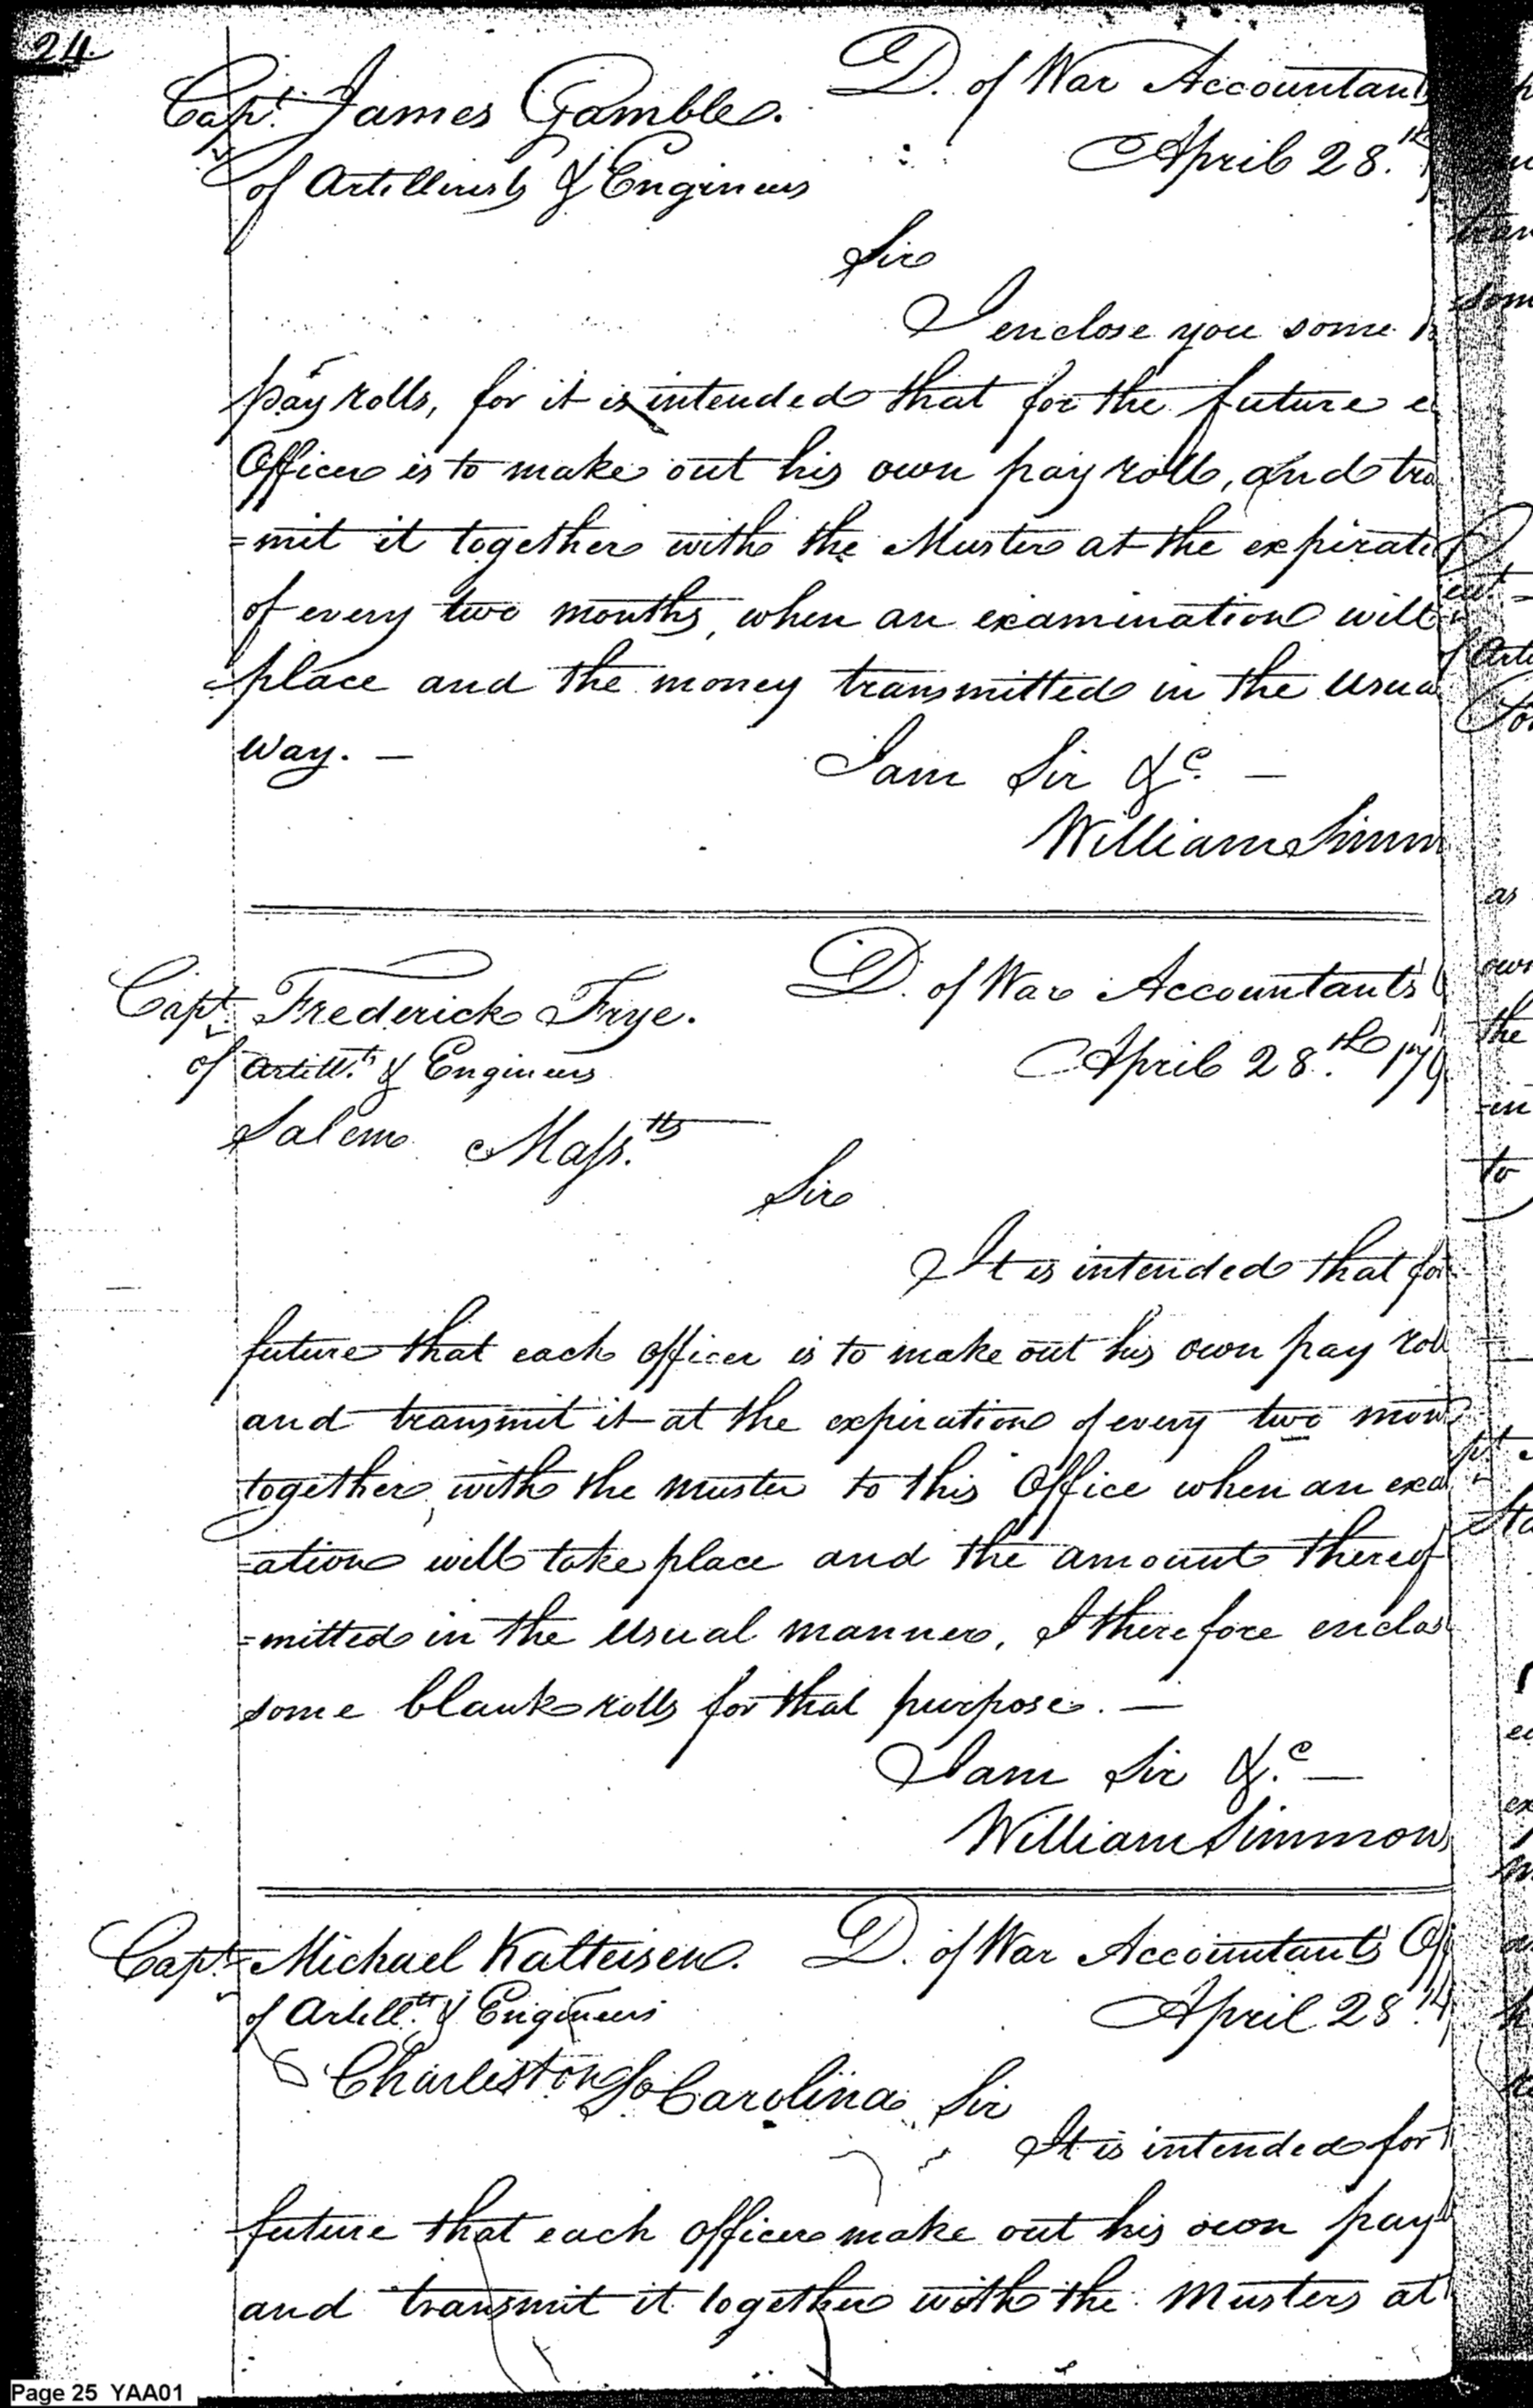 24.
Capt. James Gamble.
of Artillerists & Engineers
D. of War Accountant
April 28.th
Sir
I enclose you some
pay rolls, for it is intended that for the future e
Officer is to make out his own pay roll, and tra
=mit it together with the Muster at the expirati
of every two months, when an examination will
place and the money transmitted in the usua
way. —
I am Sir &c. —
William Simm
Capt. Frederick Frye.
of Artill.ts & Engineers
Salem Mass.ts
D. of War Accountants
April 28.th 179
Sir
It is intended that for
future that each officer is to make out his own pay roll
and transmit it at the expiration of every two mon
together, with the muster to this Office when an exa
=ation will take place and the amount thereof
=mitted in the usual manner, I therefore enclos
some blank rolls for that purpose. —
I am Sir &.c —
William Simmons
Capt. Michael Kalteisen.
of Artill.ts & Engineers
Charleston So Carolina
D. of War Accountants Off
April 28.th
Sir
It is intended for
future that each officer make out his own pay
and transmit it together with the Musters at
Page 25 YAA01